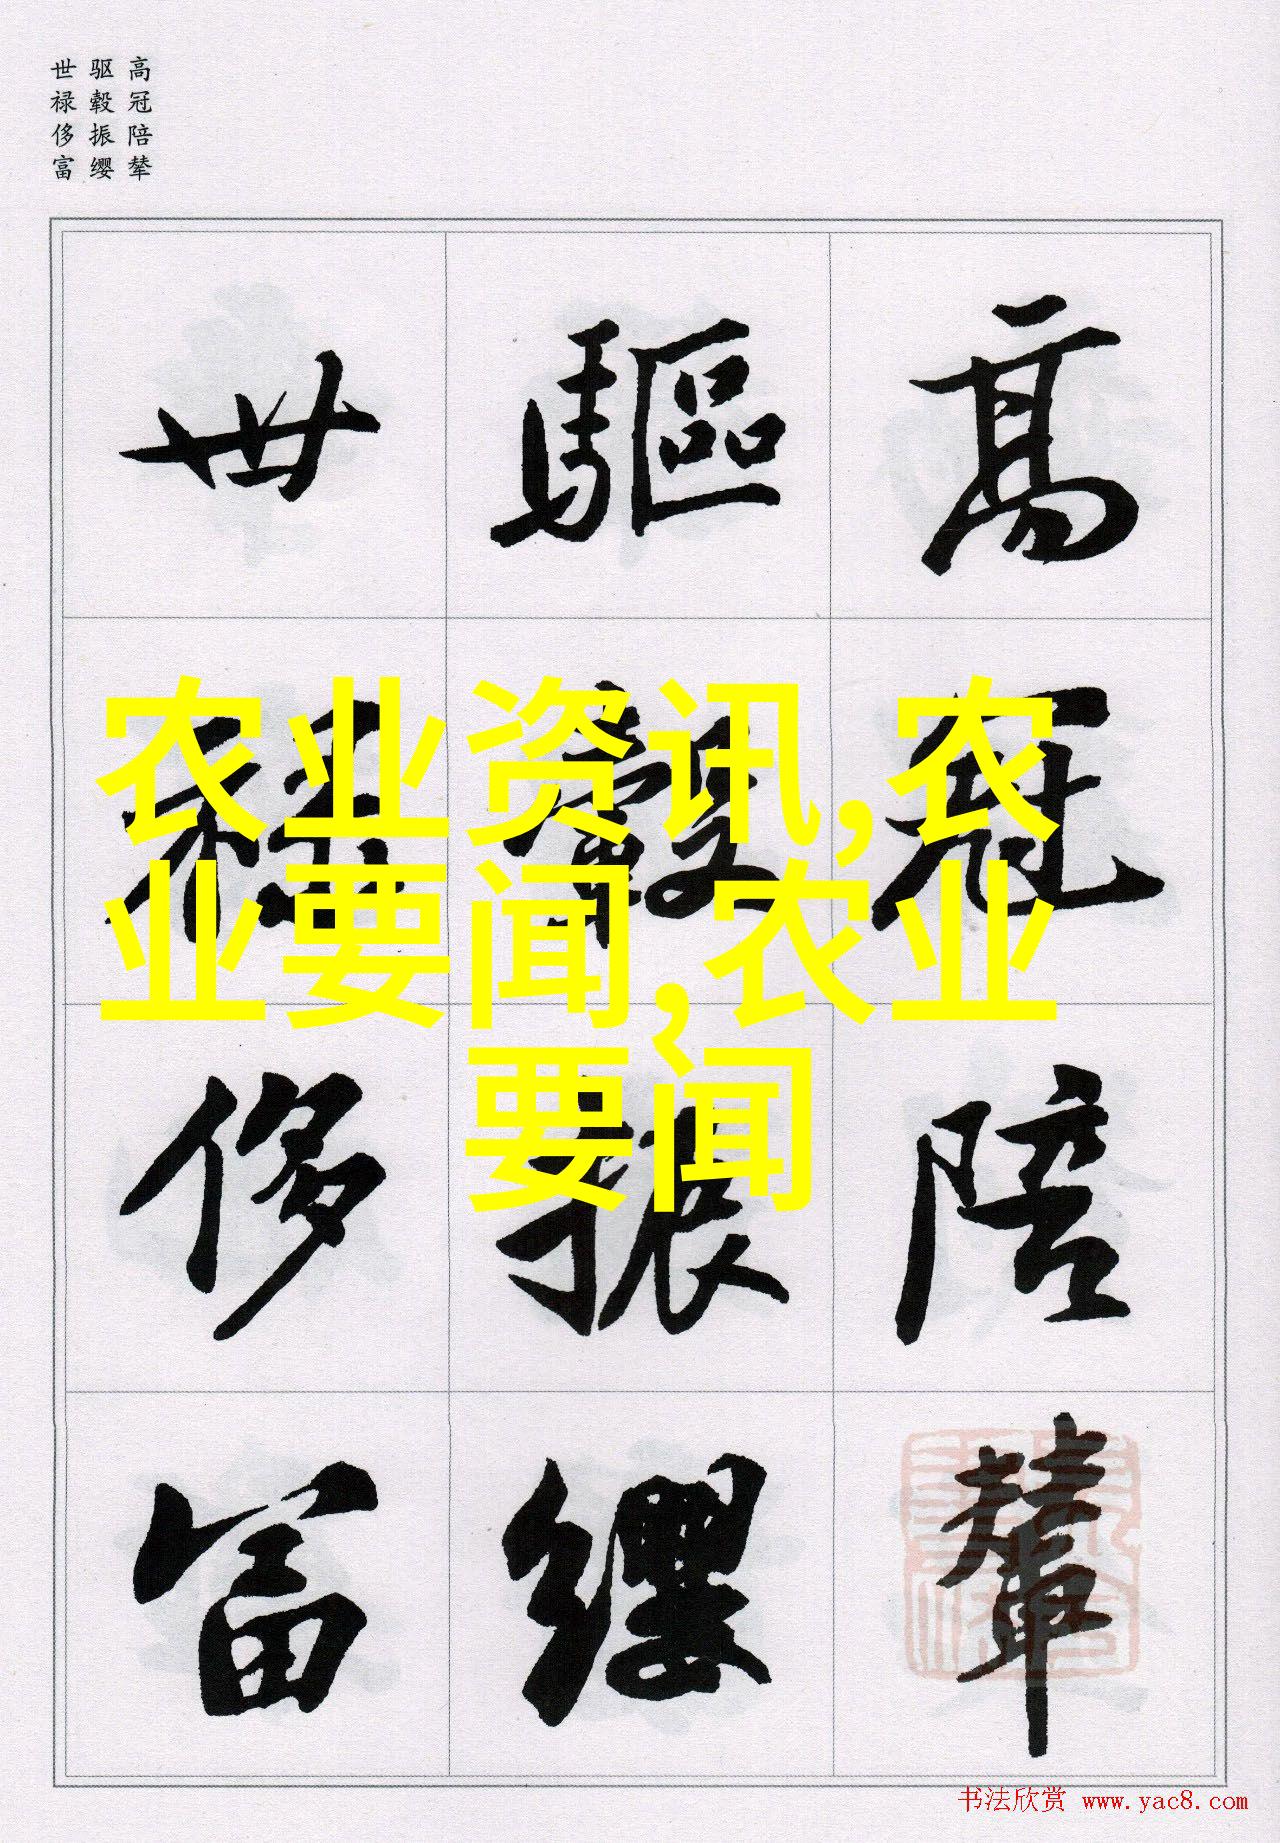 高冠陪辇
驱毂振缨
世禄侈富
高冠陪輦
驅轂振纓
世禄侈富
农业资讯,农
业要闻,农业
要闻
书法欣赏 www.yac8.com